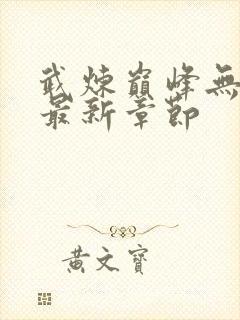 武煉巔峰無
最新章節
黃文寶